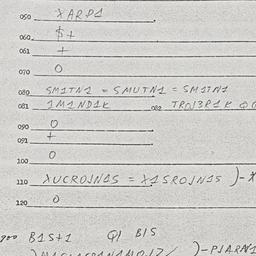 050 XARP1
060 $+
061 +
070 0
080 SM1TN1 = SMUTN1 = SM1TN1
081 1M1ND1K 082 TROJ3P1K
090 0
091 +
0
100
110 XUCROJN1S = X1SROJN1S )-X
120 0
B1S+1 Q1 B1S
)-P1ARN1